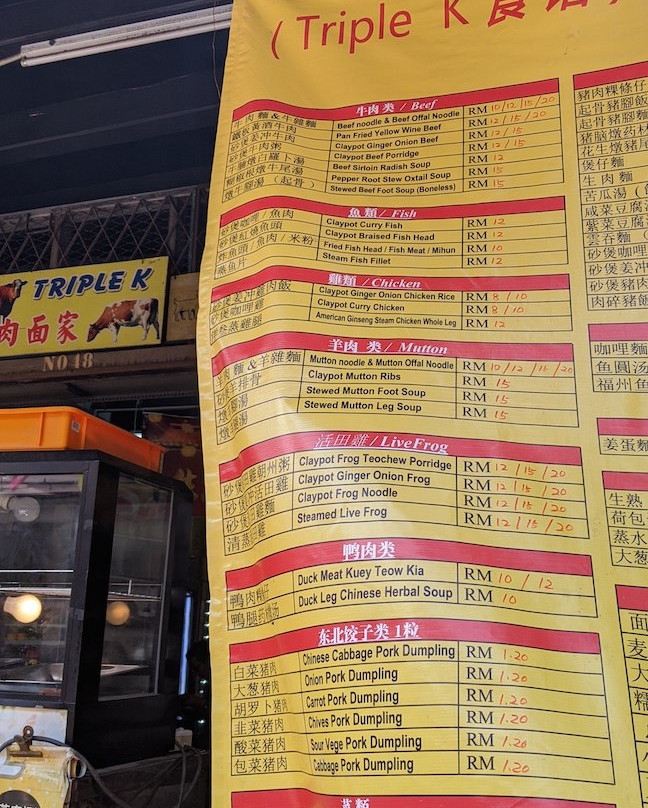 (Triple K 食店
牛肉类 / Beef
牛肉麵&牛雜麵 Beef noodle & Beef Offal Noodle RM 10/12/15/20
鐵板黃酒牛肉 Pan Fried Yellow Wine Beef RM 12/15/20
砂煲姜冲牛肉 Claypot Ginger Onion Beef RM 12/15
砂煲牛肉粥 Claypot Beef Porridge RM 12
牛腩燉白羅卜湯 Beef Sirloin Radish Soup RM 15
胡椒根燉牛尾湯 Pepper Root Stew Oxtail Soup RM 15
燉牛腳湯（起骨） Stewed Beef Foot Soup (Boneless) RM 15
魚類 / Fish
砂煲咖哩魚肉 Claypot Curry Fish RM 12
砂煲紅燒魚頭 Claypot Braised Fish Head RM 12
炸魚頭/魚肉/米粉 Fried Fish Head / Fish Meat / Mihun RM 10
蒸魚片 Steam Fish Fillet RM 12
雞類 / Chicken
砂煲姜冲雞肉飯 Claypot Ginger Onion Chicken Rice RM 8/10
砂煲咖哩雞 Claypot Curry Chicken RM 8/10
蒸雞腿 American Ginseng Steam Chicken Whole Leg RM 12
羊肉 类 / Mutton
羊肉麵&羊雜麵 Mutton noodle & Mutton Offal Noodle RM 10/12/11/20
砂煲羊排骨 Claypot Mutton Ribs RM 15
Stewed Mutton Foot Soup RM 15
Stewed Mutton Leg Soup RM 15
活田雞 / LiveFrog
砂煲田雞朝州粥 Claypot Frog Teochew Porridge RM 12/15/20
砂煲姜冲活田雞 Claypot Ginger Onion Frog RM 12/15/20
砂煲田雞麵 Claypot Frog Noodle RM 12/15/20
清蒸田雞 Steamed Live Frog RM 12/15/20
鸭肉类
鴨肉粿仔 Duck Meat Kuey Teow Kia RM 10 / 12
鴨腿药燉汤 Duck Leg Chinese Herbal Soup RM 10
东北饺子类 1粒
白菜猪肉 Chinese Cabbage Pork Dumpling RM 1.20
大葱猪肉 Onion Pork Dumpling RM 1.20
胡罗卜猪肉 Carrot Pork Dumpling RM 1.20
韭菜猪肉 Chives Pork Dumpling RM 1.20
酸菜猪肉 Sour Vege Pork Dumpling RM 1.20
包菜猪肉 Cabbage Pork Dumpling RM 1.20
猪肉粿條仔
起骨豬腳飯
起骨豬腳麵
猪脑燉药材
花生燉豬尾
煲仔麵
生肉麵
苦瓜湯
咸菜豆腐
紫菜豆腐
雲吞麵
砂煲咖哩
砂煲姜冲
砂煲豬肉
肉碎豬飯
咖哩麵
鱼圓汤
福州鱼
姜蛋麵
生熟
荷包
蒸水
大葱
TRIPLE K
肉面家
NO 48